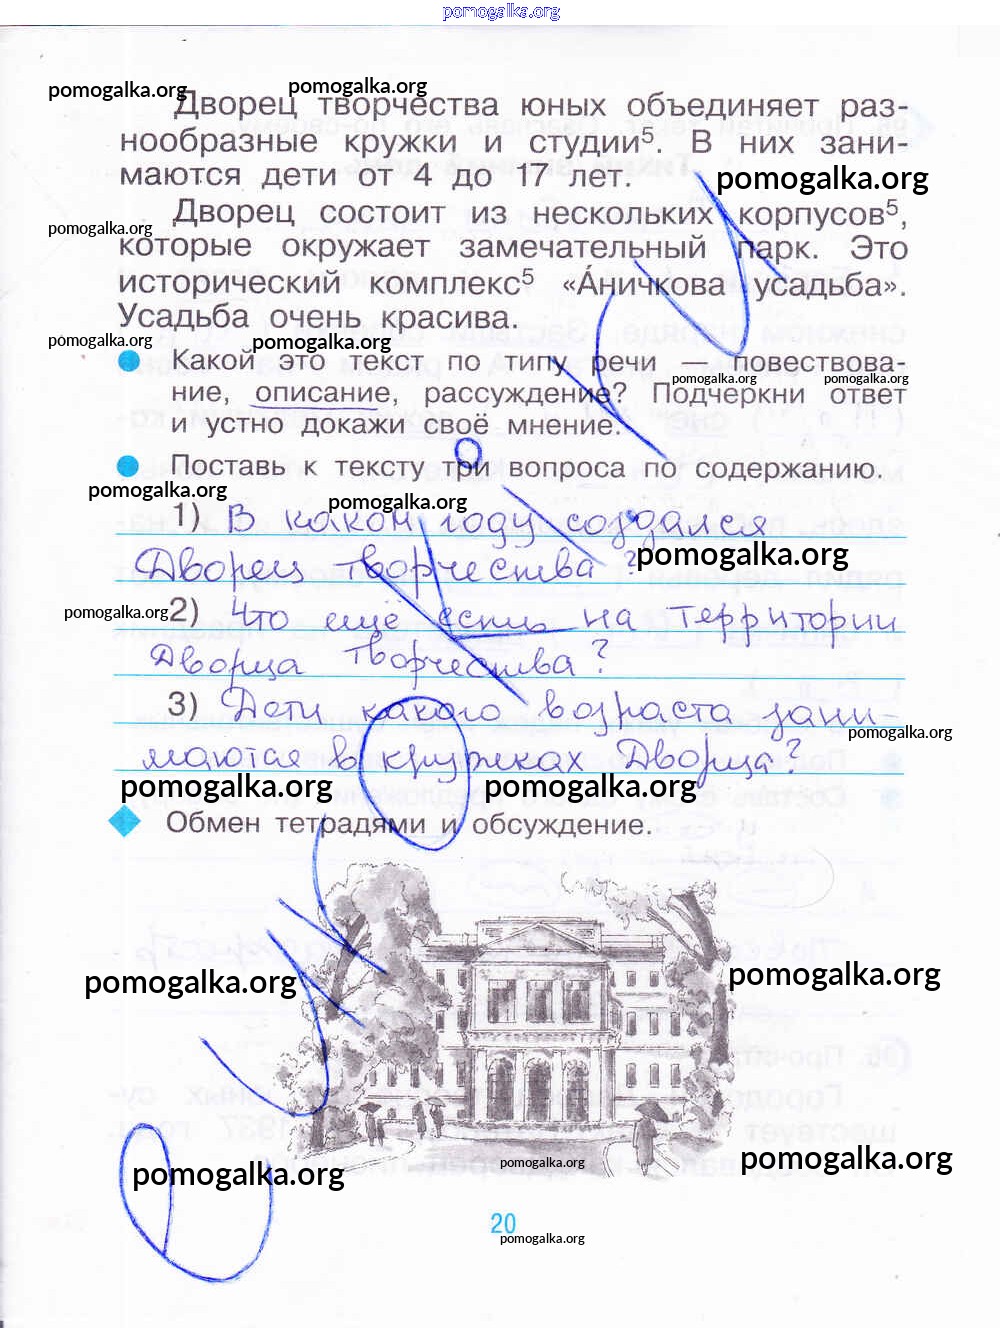 pomogalka.org
pomogalka.org pomogalka.org
Дворец творчества юных объединяет раз-
нообразные кружки и студии⁵. В них зани-
маются дети от 4 до 17 лет.
pomogalka.org
Дворец состоит из нескольких корпусов⁵,
pomogalka.org
которые окружает замечательный парк. Это
исторический комплекс⁵ «А́ничкова усадьба».
Усадьба очень красива.
pomogalka.org pomogalka.org
Какой это текст по типу речи — повествова-
pomogalka.org pomogalka.org
ние, описание, рассуждение? Подчеркни ответ
и устно докажи своё мнение.
Поставь к тексту три вопроса по содержанию.
pomogalka.org pomogalka.org
1) В каком году создался
pomogalka.org
Дворец творчества?
pomogalka.org
2) Что ещё есть на территории
Дворца творчества?
3) Дети какого возраста зани-
pomogalka.org
маются в кружках Дворца?
pomogalka.org pomogalka.org
Обмен тетрадями и обсуждение.
pomogalka.org pomogalka.org
pomogalka.org pomogalka.org pomogalka.org
20
pomogalka.org